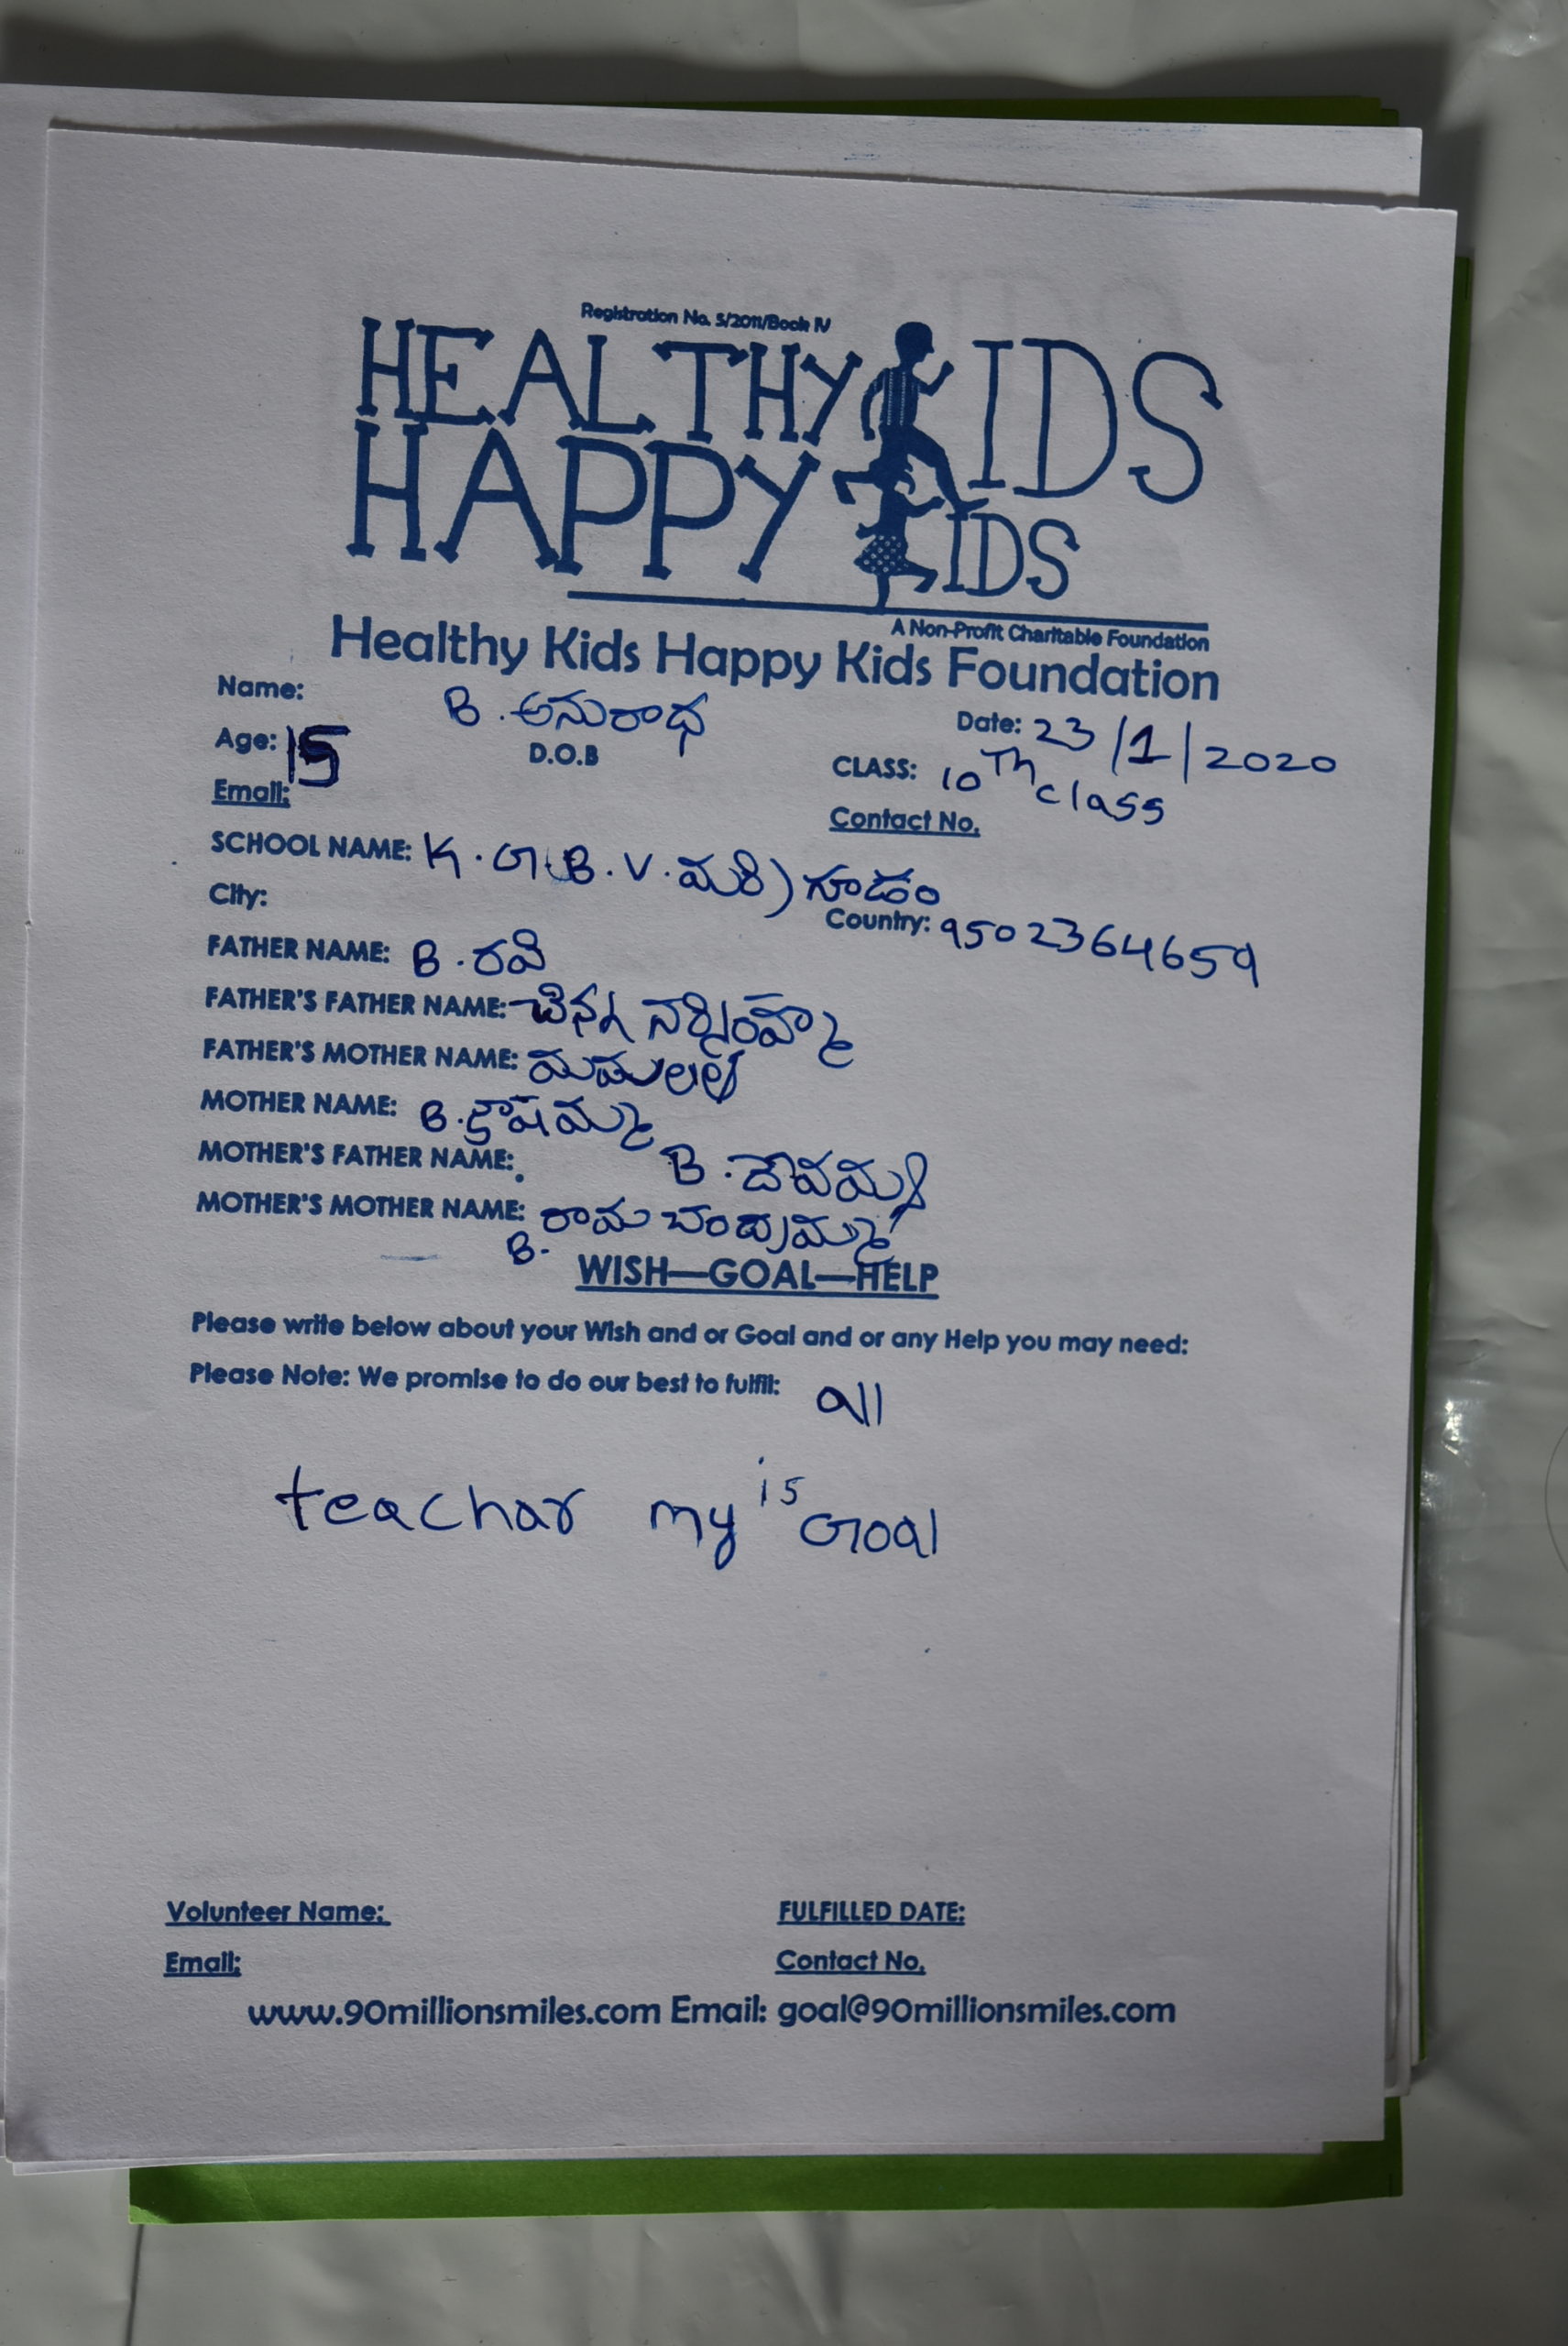 Registration No. 5/2011/Book IV
HEALTHY KIDS
HAPPY KIDS
A Non-Profit Charitable Foundation
Healthy Kids Happy Kids Foundation
Name: B. అనురాధ Date: 23/1/2020
Age: 15 D.O.B CLASS: 10Th class
Email: Contact No.
SCHOOL NAME: K.G.B.V. మర్రిగూడం
City: Country: 9502364659
FATHER NAME: B. రవి
FATHER'S FATHER NAME: చిన్న నర్సింహ్మ
FATHER'S MOTHER NAME:
MOTHER NAME: B.
MOTHER'S FATHER NAME: B. దేవమ్మ
MOTHER'S MOTHER NAME: B. రామ చంద్రమ్మ
WISH—GOAL—HELP
Please write below about your Wish and or Goal and or any Help you may need:
Please Note: We promise to do our best to fulfil: all
teachar my is Goal
Volunteer Name: FULFILLED DATE:
Email: Contact No.
www.90millionsmiles.com Email: goal@90millionsmiles.com